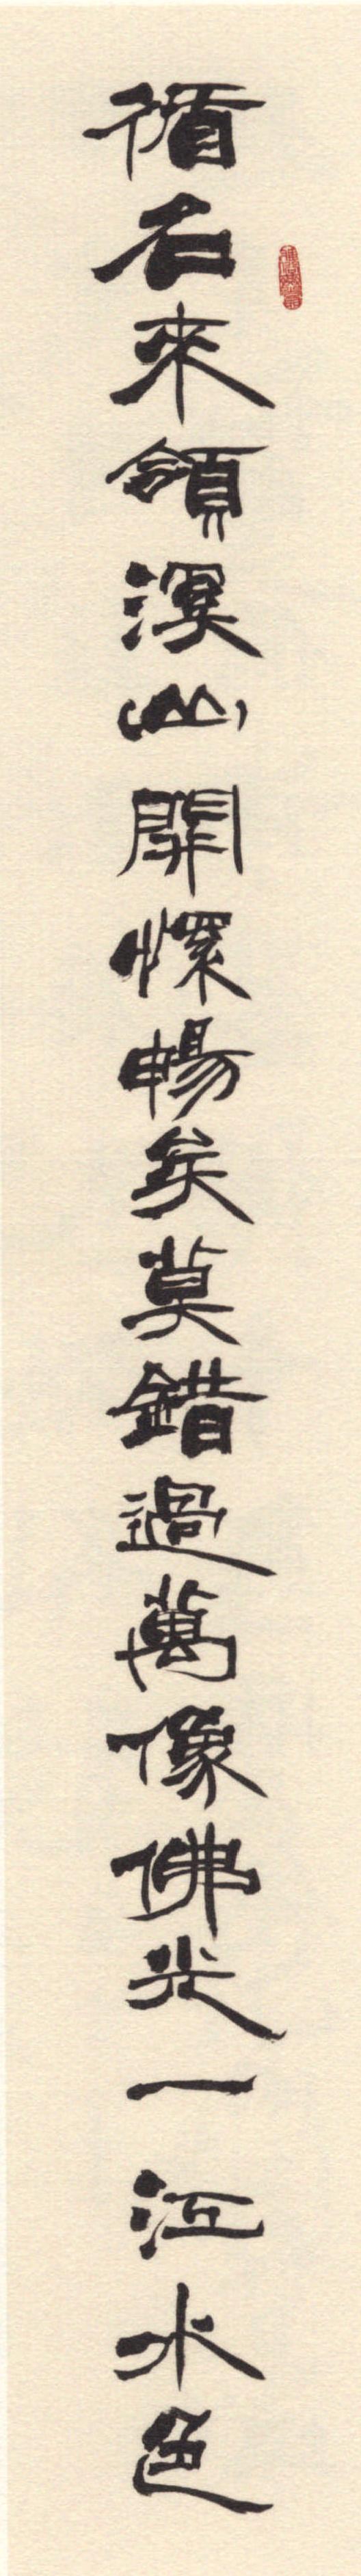 循石來領溟山開懷暢矣莫錯過萬像佛光一江水色